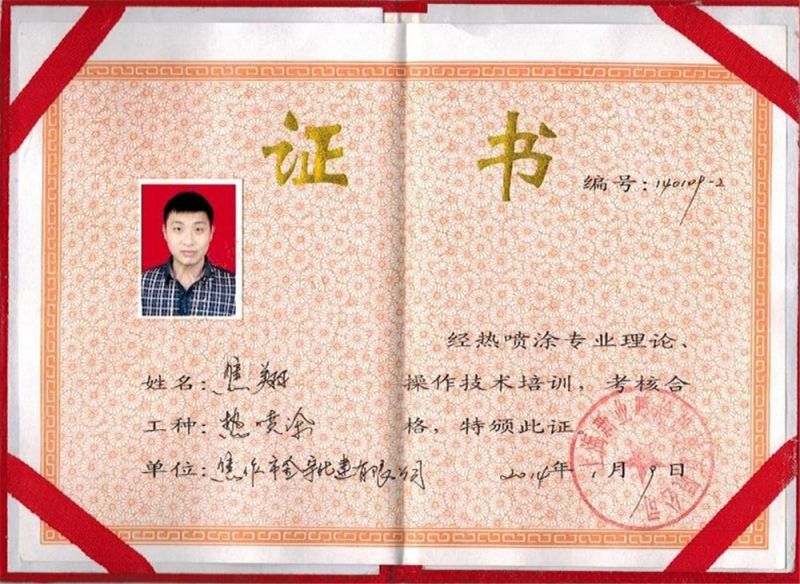 证书
编号：140109-2
姓名：焦翔
工种：热喷涂
单位：焦作市金 建有限公司
经热喷涂专业理论、
操作技术培训，考核合
格，特颁此证。
2014年1月9日